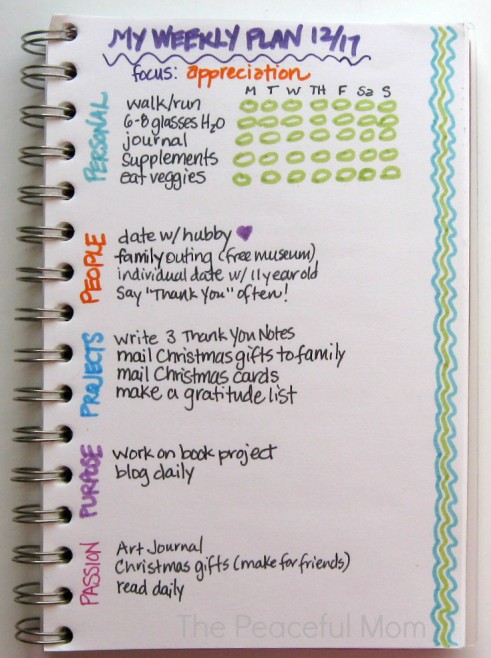 MY WEEKLY PLAN 12/17
focus: appreciation
M T W TH F Sa S
PERSONAL
walk/run
6-8 glasses H₂O
journal
supplements
eat veggies
PEOPLE
date w/ hubby
family outing (free museum)
individual date w/ 11 year old
Say "Thank You" often!
PROJECTS
write 3 Thank You Notes
mail Christmas gifts to family
mail Christmas cards
make a gratitude list
PURPOSE
work on book project
blog daily
PASSION
Art Journal
Christmas gifts (make for friends)
read daily
The Peaceful Mom